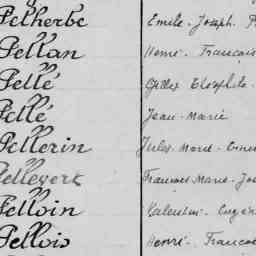 Pelherbe Emile-Joseph
Pellan Henri-Francois
Pellé Théophile
Pellé Jean-Marie
Pellerin Jules-Marie
Pellevert Francois-Marie
Pelloin Valentin-Eugèn
Pellois Henri-Franco